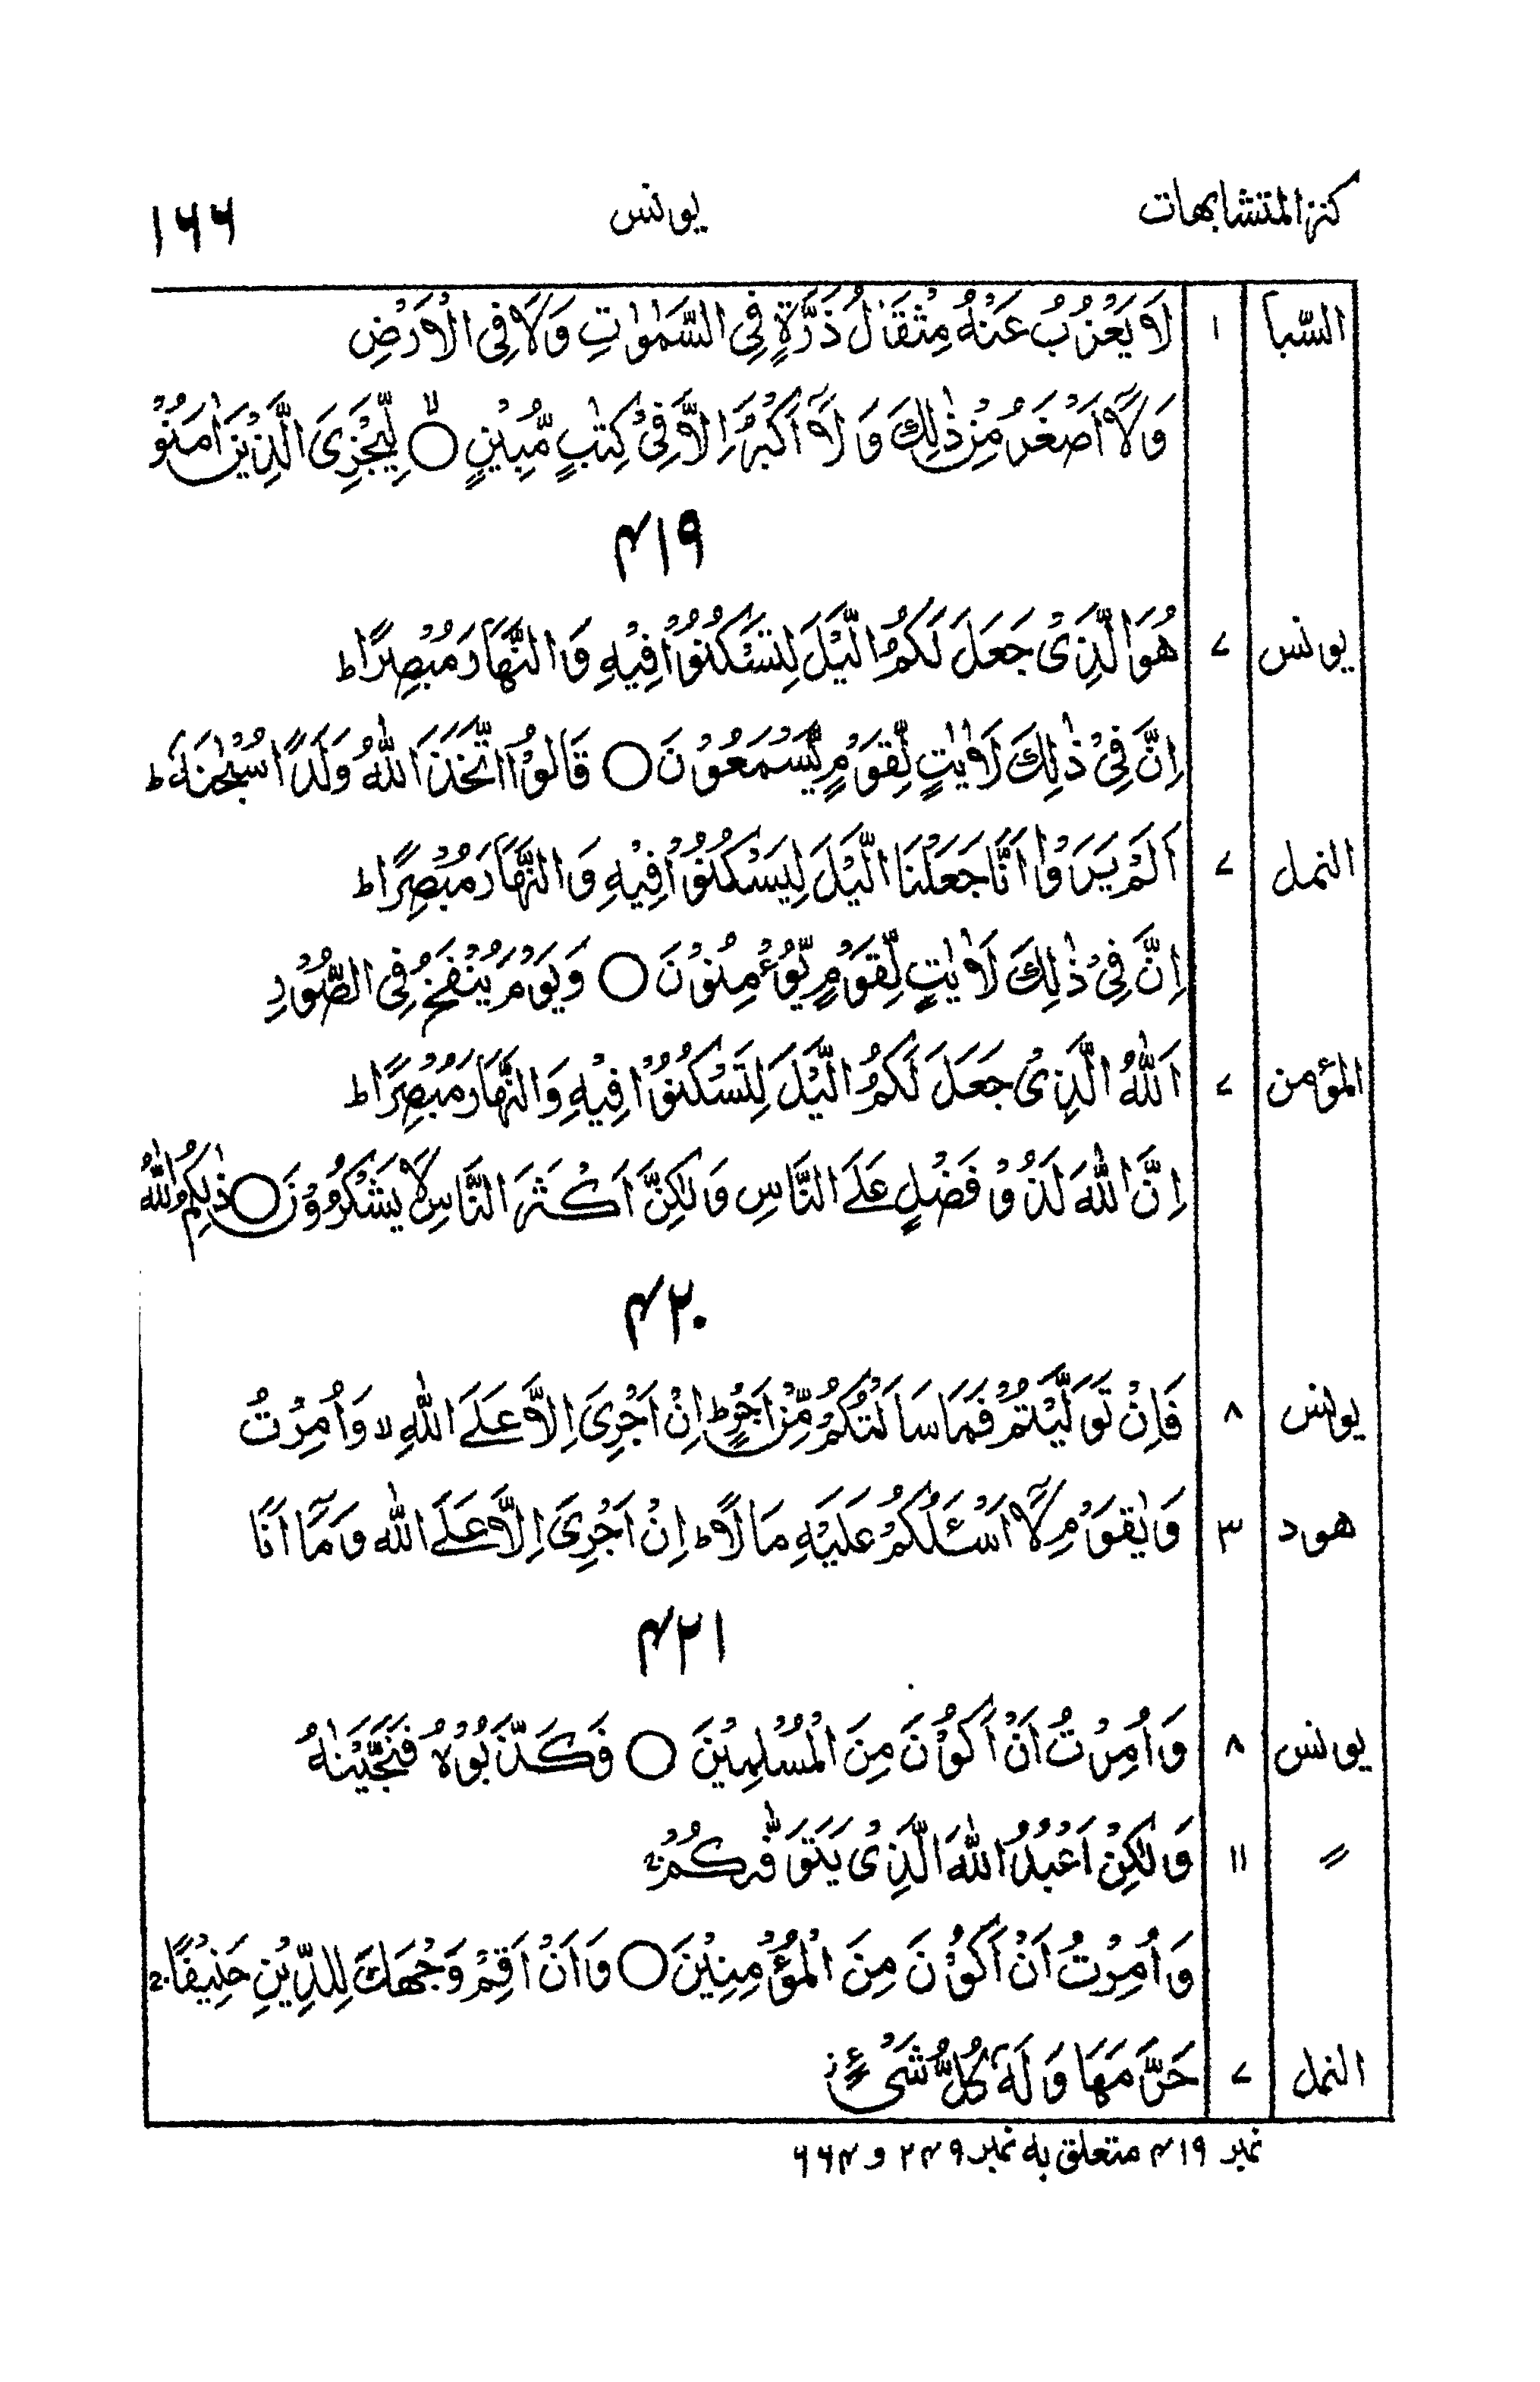 كنز المتشابهات يونس ۱۶۶
السّبا ۱ لَا يَعْزُبُ عَنْهُ مِثْقَالُ ذَرَّةٍ فِى السَّمٰوٰتِ وَلَا فِى الْاَرْضِ
وَلَآ اَصْغَرُ مِنْ ذٰلِكَ وَ لَآ اَكْبَرُ اِلَّا فِىْ كِتٰبٍ مُّبِيْنٍ ۙ○ لِّيَجْزِىَ الَّذِيْنَ اٰمَنُوْ
۴۱۹
يونس ۷ هُوَ الَّذِىْ جَعَلَ لَكُمُ الَّيْلَ لِتَسْكُنُوْا فِيْهِ وَ النَّهَارَ مُبْصِرًا ط
اِنَّ فِىْ ذٰلِكَ لَاٰيٰتٍ لِّقَوْمٍ يَّسْمَعُوْنَ ○ قَالُوْا اتَّخَذَ اللّٰهُ وَلَدًا سُبْحٰنَهٗ ط
النمل ۷ اَلَمْ يَرَوْا اَنَّا جَعَلْنَا الَّيْلَ لِيَسْكُنُوْا فِيْهِ وَ النَّهَارَ مُبْصِرًا ط
اِنَّ فِىْ ذٰلِكَ لَاٰيٰتٍ لِّقَوْمٍ يُّؤْمِنُوْنَ ○ وَ يَوْمَ يُنْفَخُ فِى الصُّوْرِ
المؤمن ۷ اَللّٰهُ الَّذِىْ جَعَلَ لَكُمُ الَّيْلَ لِتَسْكُنُوْا فِيْهِ وَ النَّهَارَ مُبْصِرًا ط
اِنَّ اللّٰهَ لَذُوْ فَضْلٍ عَلَى النَّاسِ وَ لٰكِنَّ اَكْثَرَ النَّاسِ لَا يَشْكُرُوْنَ ○ ذٰلِكُمُ اللّٰهُ
۴۲۰
يونس ۸ فَاِنْ تَوَلَّيْتُمْ فَمَا سَاَلْتُكُمْ مِّنْ اَجْرٍ ط اِنْ اَجْرِىَ اِلَّا عَلَى اللّٰهِ لا وَ اُمِرْتُ
هود ۳ وَ يٰقَوْمِ لَآ اَسْئَلُكُمْ عَلَيْهِ مَالًا ط اِنْ اَجْرِىَ اِلَّا عَلَى اللّٰه وَ مَآ اَنَا
۴۲۱
يونس ۸ وَ اُمِرْتُ اَنْ اَكُوْنَ مِنَ الْمُسْلِمِيْنَ ○ فَكَذَّبُوْهُ فَنَجَّيْنٰهُ
〃 ۱۱ وَ لٰكِنْ اَعْبُدُ اللّٰهَ الَّذِىْ يَتَوَفّٰىكُمْ ۖ
وَ اُمِرْتُ اَنْ اَكُوْنَ مِنَ الْمُؤْمِنِيْنَ ○ وَ اَنْ اَقِمْ وَجْهَكَ لِلدِّيْنِ حَنِيْفًا ۚ
النمل ۷ حَرَّمَهَا وَ لَهٗ كُلُّ شَىْءٍ ز
نمبر ۴۱۹ متعلق به نمبر ۲۴۹ و ۶۶۴